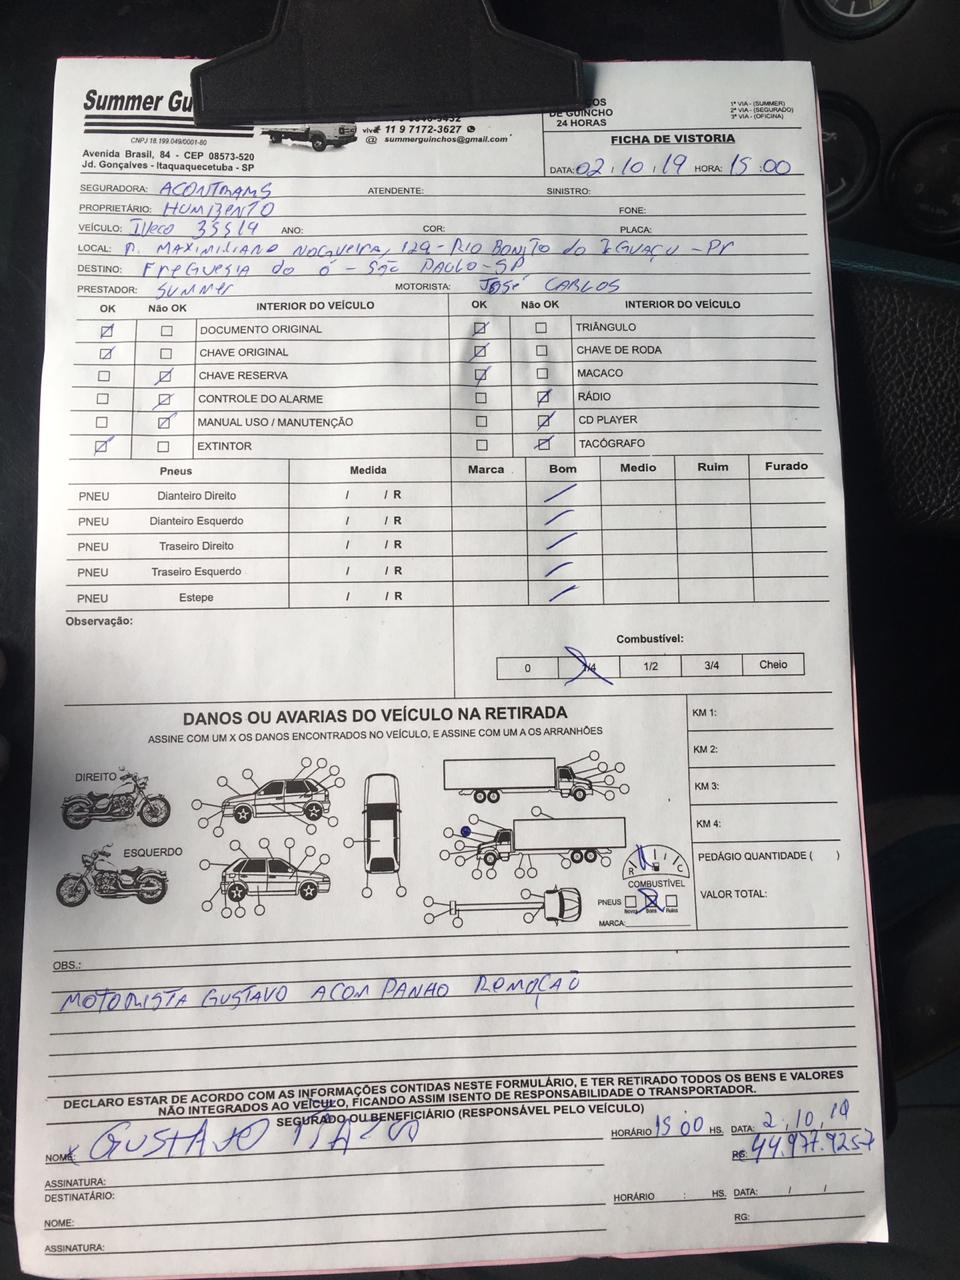 Summer Gu
CNPJ 18.199.049/0001-60
Avenida Brasil, 84 - CEP 08573-520
Jd. Gonçalves - Itaquaquecetuba - SP
vivo 11 9 7172-3627
@ summerguinchos@gmail.com
DE GUINCHO
24 HORAS
1ª VIA - (SUMMER)
2ª VIA - (SEGURADO)
3ª VIA - (OFICINA)
FICHA DE VISTORIA
DATA: 02 / 10 / 19 HORA: 15 :00
SEGURADORA: ACONTRAMS ATENDENTE: SINISTRO:
PROPRIETÁRIO: HUMBENTO FONE:
VEÍCULO: Iveco 35S14 ANO: COR: PLACA:
LOCAL: R. MAXIMILIANO NOGUEIRA, 129 - RIO BONITO do IGUAÇU - PR
DESTINO: FREGUESIA do Ó - São PAULO - SP
PRESTADOR: SUMMER MOTORISTA: JOSÉ CARLOS
OK Não OK INTERIOR DO VEÍCULO OK Não OK INTERIOR DO VEÍCULO
DOCUMENTO ORIGINAL TRIÂNGULO
CHAVE ORIGINAL CHAVE DE RODA
CHAVE RESERVA MACACO
CONTROLE DO ALARME RÁDIO
MANUAL USO / MANUTENÇÃO CD PLAYER
EXTINTOR TACÓGRAFO
Pneus Medida Marca Bom Medio Ruim Furado
PNEU Dianteiro Direito / / R
PNEU Dianteiro Esquerdo / / R
PNEU Traseiro Direito / / R
PNEU Traseiro Esquerdo / / R
PNEU Estepe / / R
Observação:
Combustível:
0 1/4 1/2 3/4 Cheio
DANOS OU AVARIAS DO VEÍCULO NA RETIRADA
ASSINE COM UM X OS DANOS ENCONTRADOS NO VEÍCULO, E ASSINE COM UM A OS ARRANHÕES
KM 1:
KM 2:
KM 3:
KM 4:
PEDÁGIO QUANTIDADE ( )
VALOR TOTAL:
DIREITO
ESQUERDO
R C
COMBUSTÍVEL
PNEUS
Novos Bons Ruins
MARCA:
OBS.:
MOTORISTA GUSTAVO ACOMPANHO REMOÇÃO
DECLARO ESTAR DE ACORDO COM AS INFORMAÇÕES CONTIDAS NESTE FORMULÁRIO, E TER RETIRADO TODOS OS BENS E VALORES
NÃO INTEGRADOS AO VEÍCULO, FICANDO ASSIM ISENTO DE RESPONSABILIDADE O TRANSPORTADOR.
SEGURADO OU BENEFICIÁRIO (RESPONSÁVEL PELO VEÍCULO)
NOME: GUSTAVO HORÁRIO 15 00 HS. DATA: 2, 10, 19
RG: 44.977.9257
ASSINATURA:
DESTINATÁRIO: HORÁRIO : HS. DATA: / /
NOME: RG:
ASSINATURA: